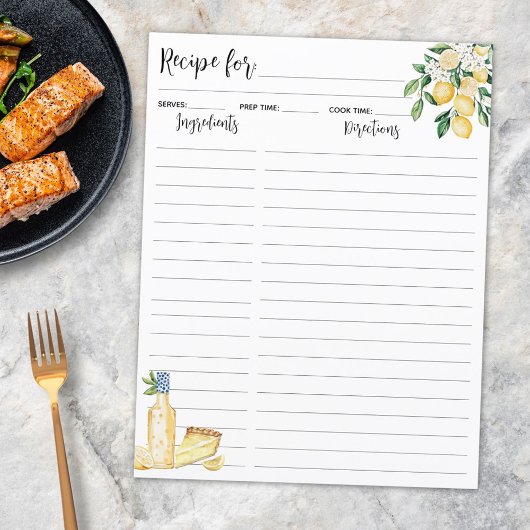 Recipe for:
SERVES: PREP TIME: COOK TIME:
Ingredients Directions